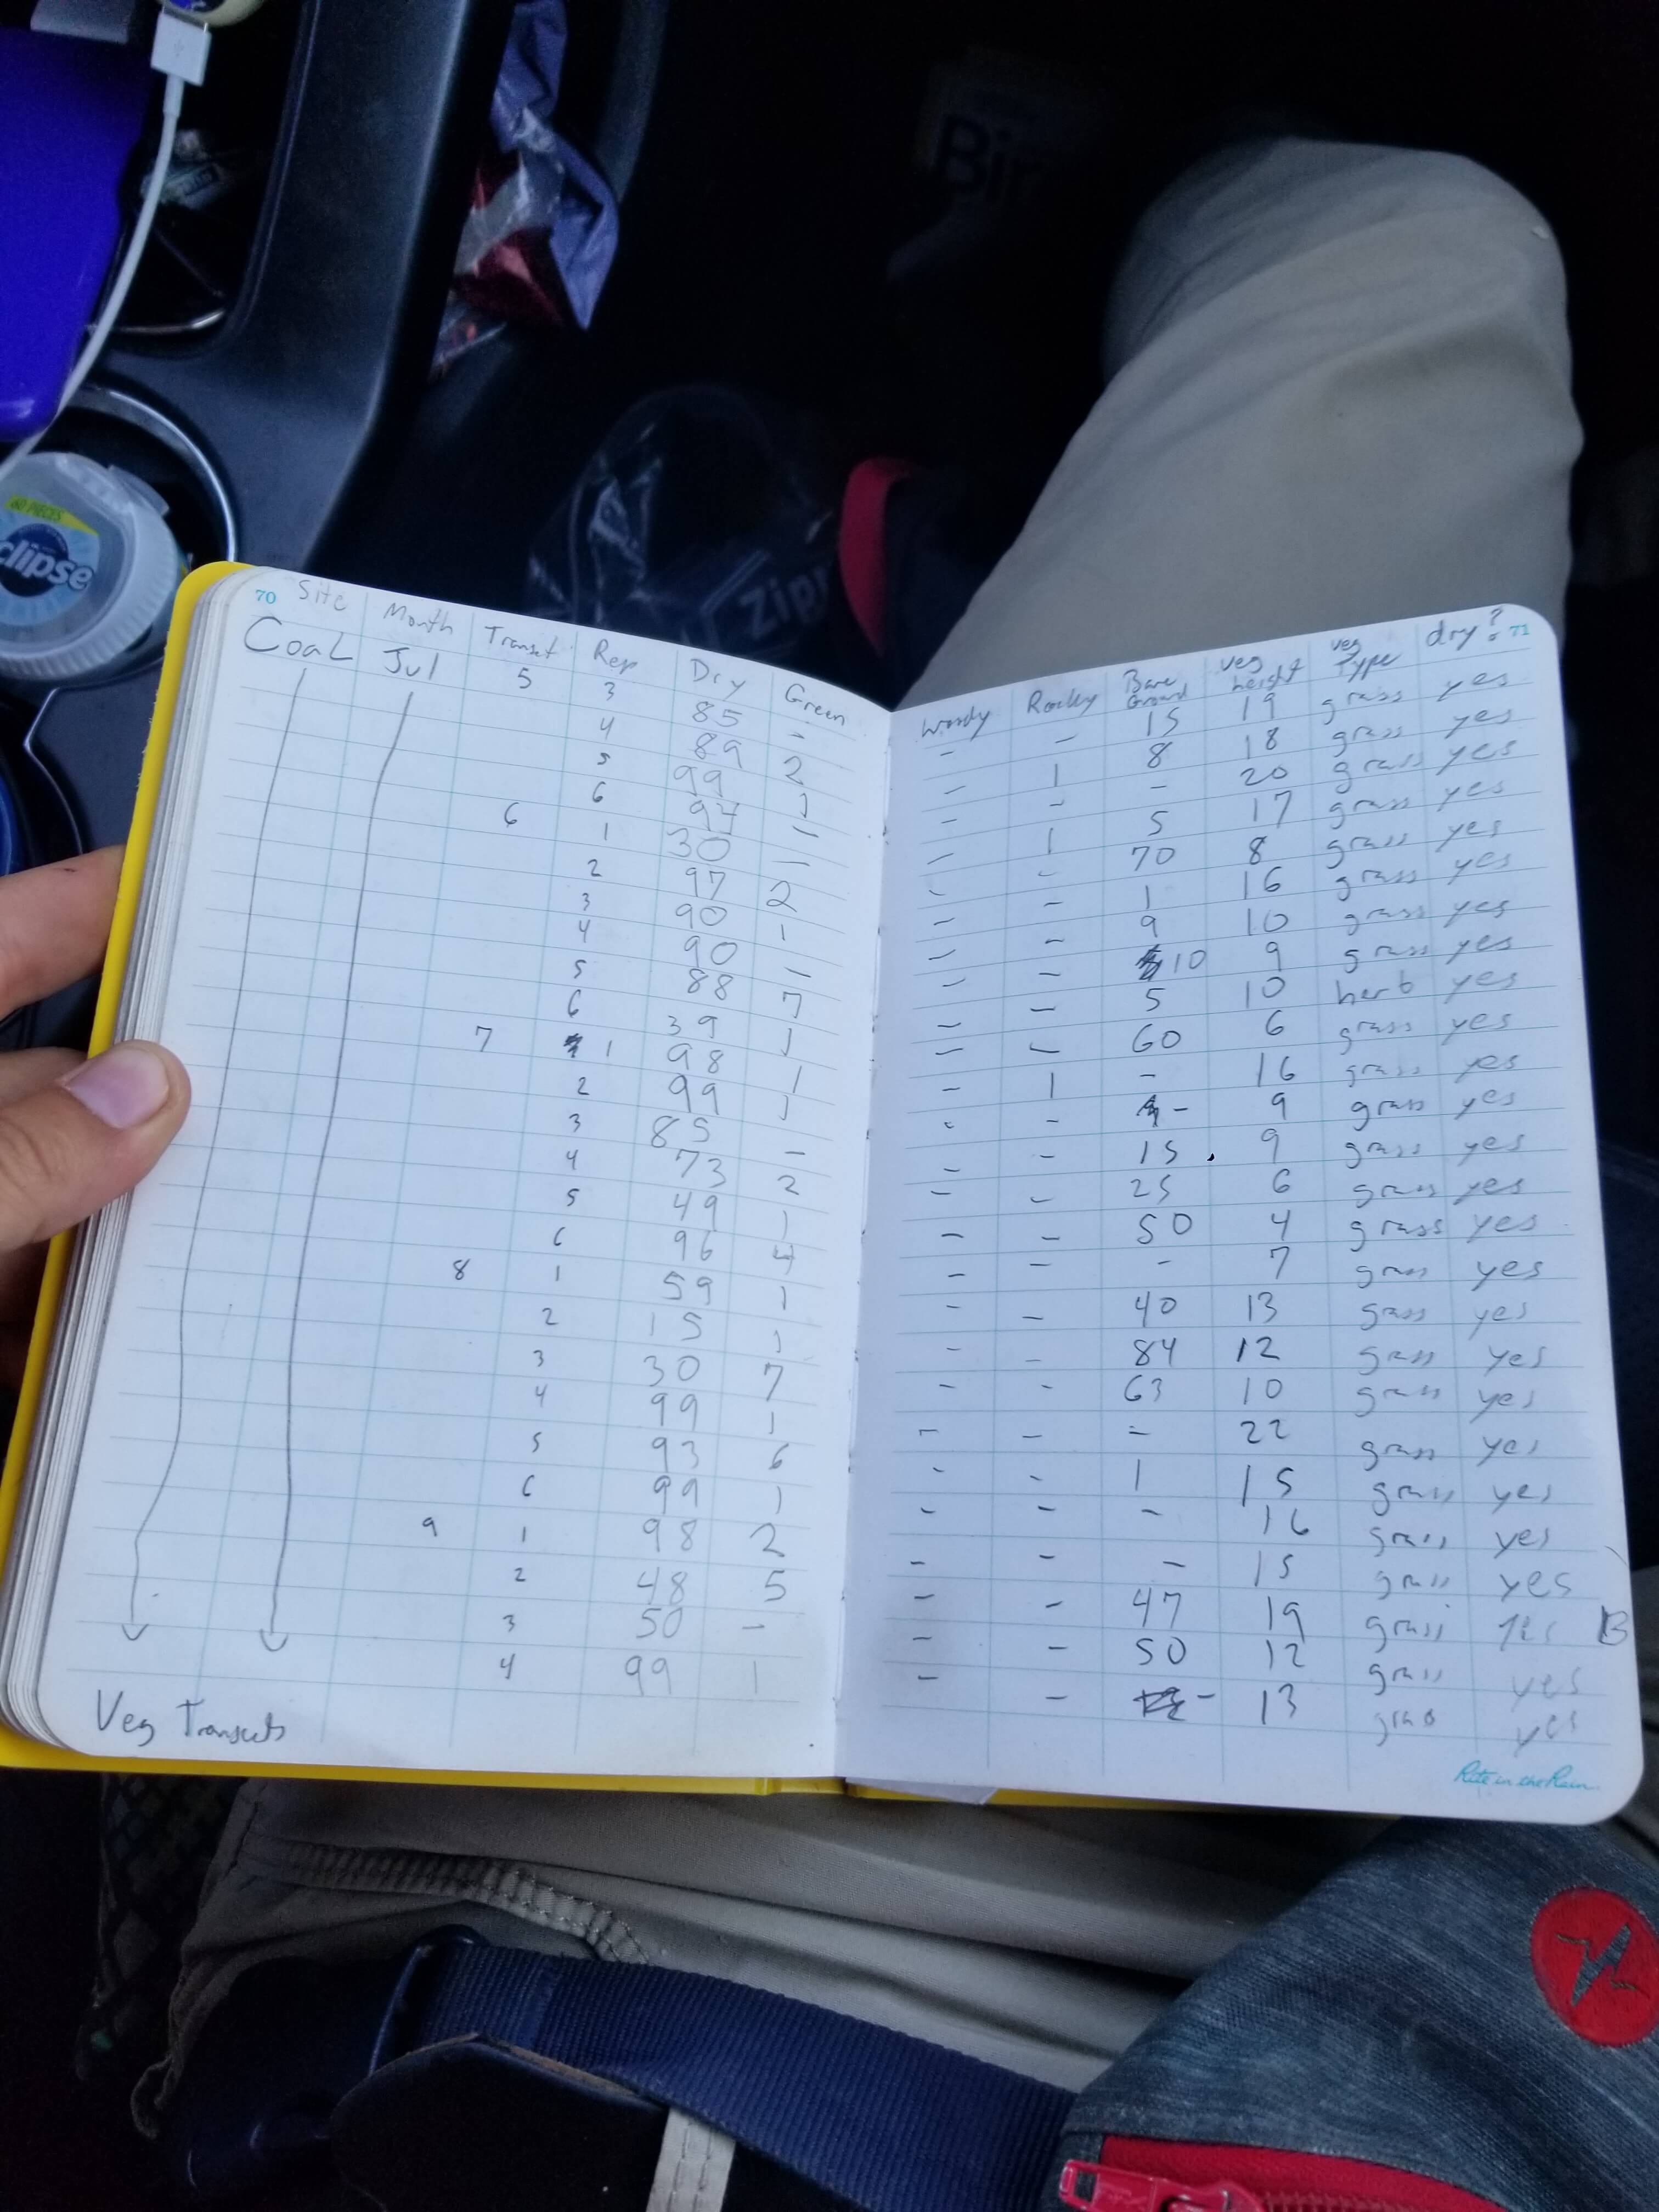 60 PIECES
clipse
Bir
Zip
70 Site Month Transect Rep Dry Green
Coal Jul 5 3 85 -
4 89 2
5 99 1
6 94 -
6 1 30 -
2 97 2
3 90 1
4 90 -
5 88 7
6 39 1
7 1 98 1
2 99 1
3 85 -
4 73 2
5 49 1
6 96 4
8 1 59 1
2 15 1
3 30 7
4 99 1
5 93 6
6 99 1
9 1 98 2
2 48 5
3 50 -
4 99 1
Veg Transects
Woody Rocky Bare Ground veg height veg Type dry? 71
- - 15 19 grass yes
- 1 8 18 grass yes
- - - 20 grass yes
- 1 5 17 grass yes
- - 70 8 grass yes
- - 1 16 grass yes
- - 9 10 grass yes
- - 10 9 grass yes
- - 5 10 herb yes
- - 60 6 grass yes
- 1 - 16 grass yes
- - - 9 grass yes
- - 15 9 grass yes
- - 25 6 grass yes
- - 50 4 grass yes
- - - 7 grass yes
- - 40 13 grass yes
- - 84 12 grass yes
- - 63 10 grass yes
- - - 22 grass yes
- - 1 15 grass yes
- - - 16 grass yes
- - - 15 grass yes
- - 47 19 grass yes B
- - 50 12 grass yes
- - - 13 grass yes
Rite in the Rain